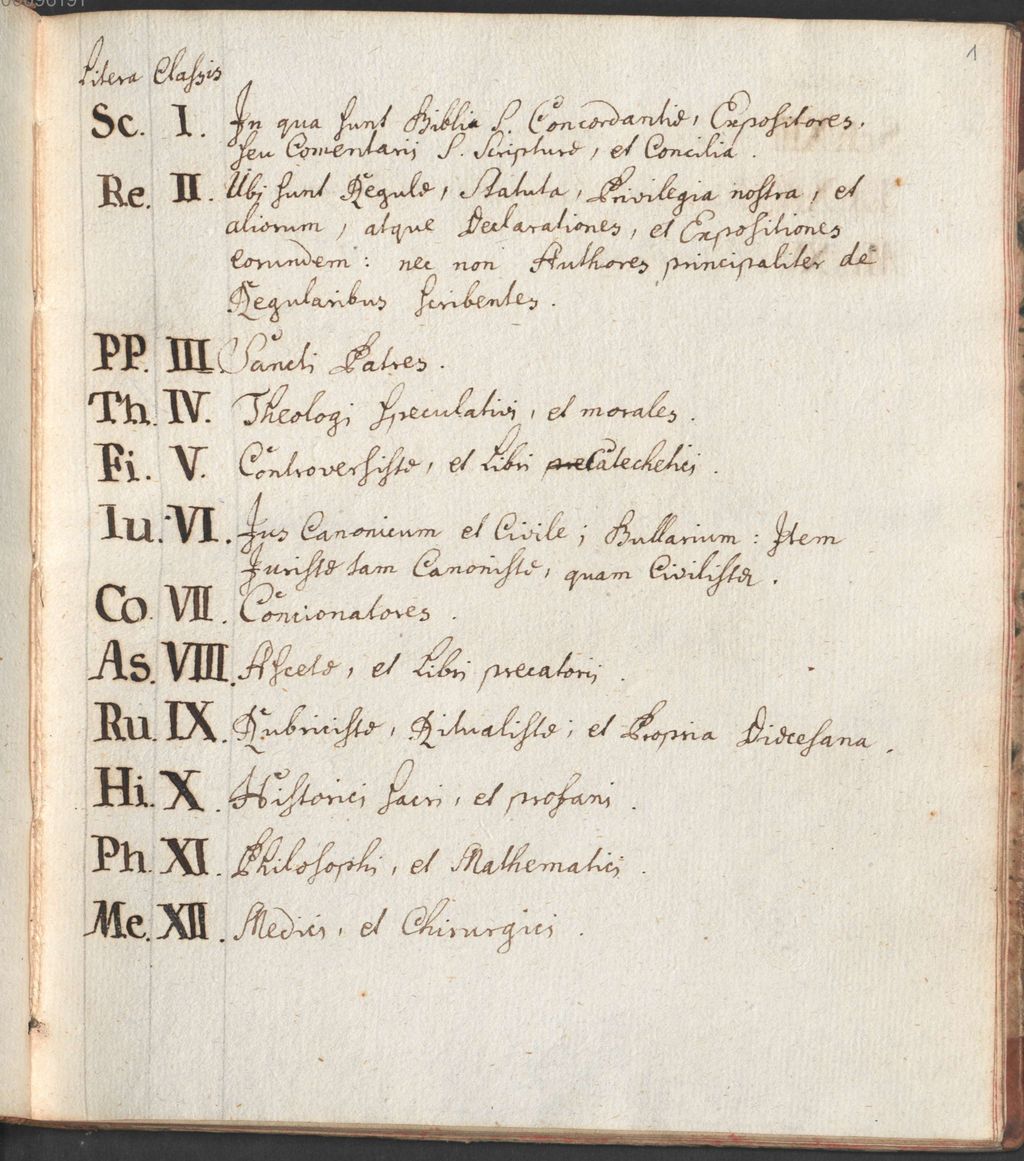 1
Litera Classis
Sc. I. In qua sunt Biblia S. Concordantiæ, Expositores,
seu Comentarij S. Scripturæ, et Concilia.
Re. II. Ubi sunt Regulæ, Statuta, Privilegia nostra, et
aliorum, atque Declarationes, et Expositiones
eorundem: nec non Authores principaliter de
Regularibus scribentes.
PP. III. Sancti Patres.
Th. IV. Theologi speculativi, et morales.
Fi. V. Controversistæ, et Libri Catechetici.
Iu. VI. Jus Canonicum et Civile; Bullarium: Item
Juristæ tam Canonistæ, quam Civilistæ.
Co. VII. Concionatores.
As. VIII. Ascetæ, et Libri precatorij.
Ru. IX. Rubricistæ, Ritualistæ, et Propria Diœcesana.
Hi. X. Historici sacri, et profani.
Ph. XI. Philosophi, et Mathematici.
Me. XII. Medici, et Chirurgici.